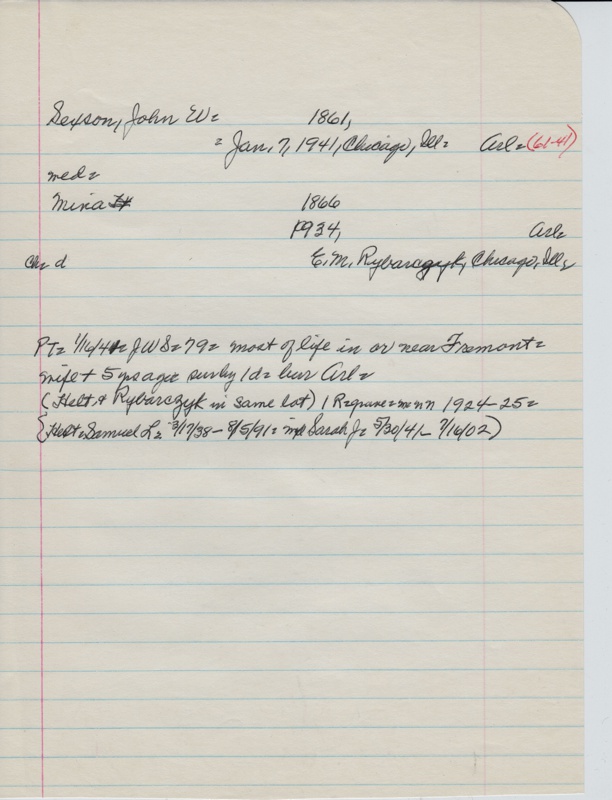 Sexson, John W= 1861,
= Jan. 7, 1941, Chicago, Ill= Arl= (61-41)
med=
Mina 1866
1934, Arl=
Ch= d E. M. Rybarczyk, Chicago, Ill=
PT= 1/16/41= JWS= 79= most of life in or near Fremont=
wife + 5 yrs ago= surv by 1d= bur Arl=
(Helt & Rybarczyk in same lot) 1 R=grave= 1924-25=
(Helt= Samuel L= 3/17/38- 8/5/91= Sarah J= 5/30/41- 7/16/02)